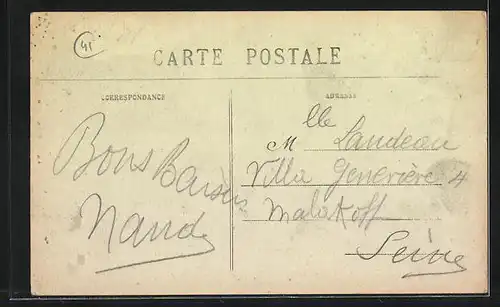 41
CARTE POSTALE
CORRESPONDANCE
ADRESSE
Bons Baisers
Nand
Mlle Landeau
Villa Genevière 4
Malakoff
Seine